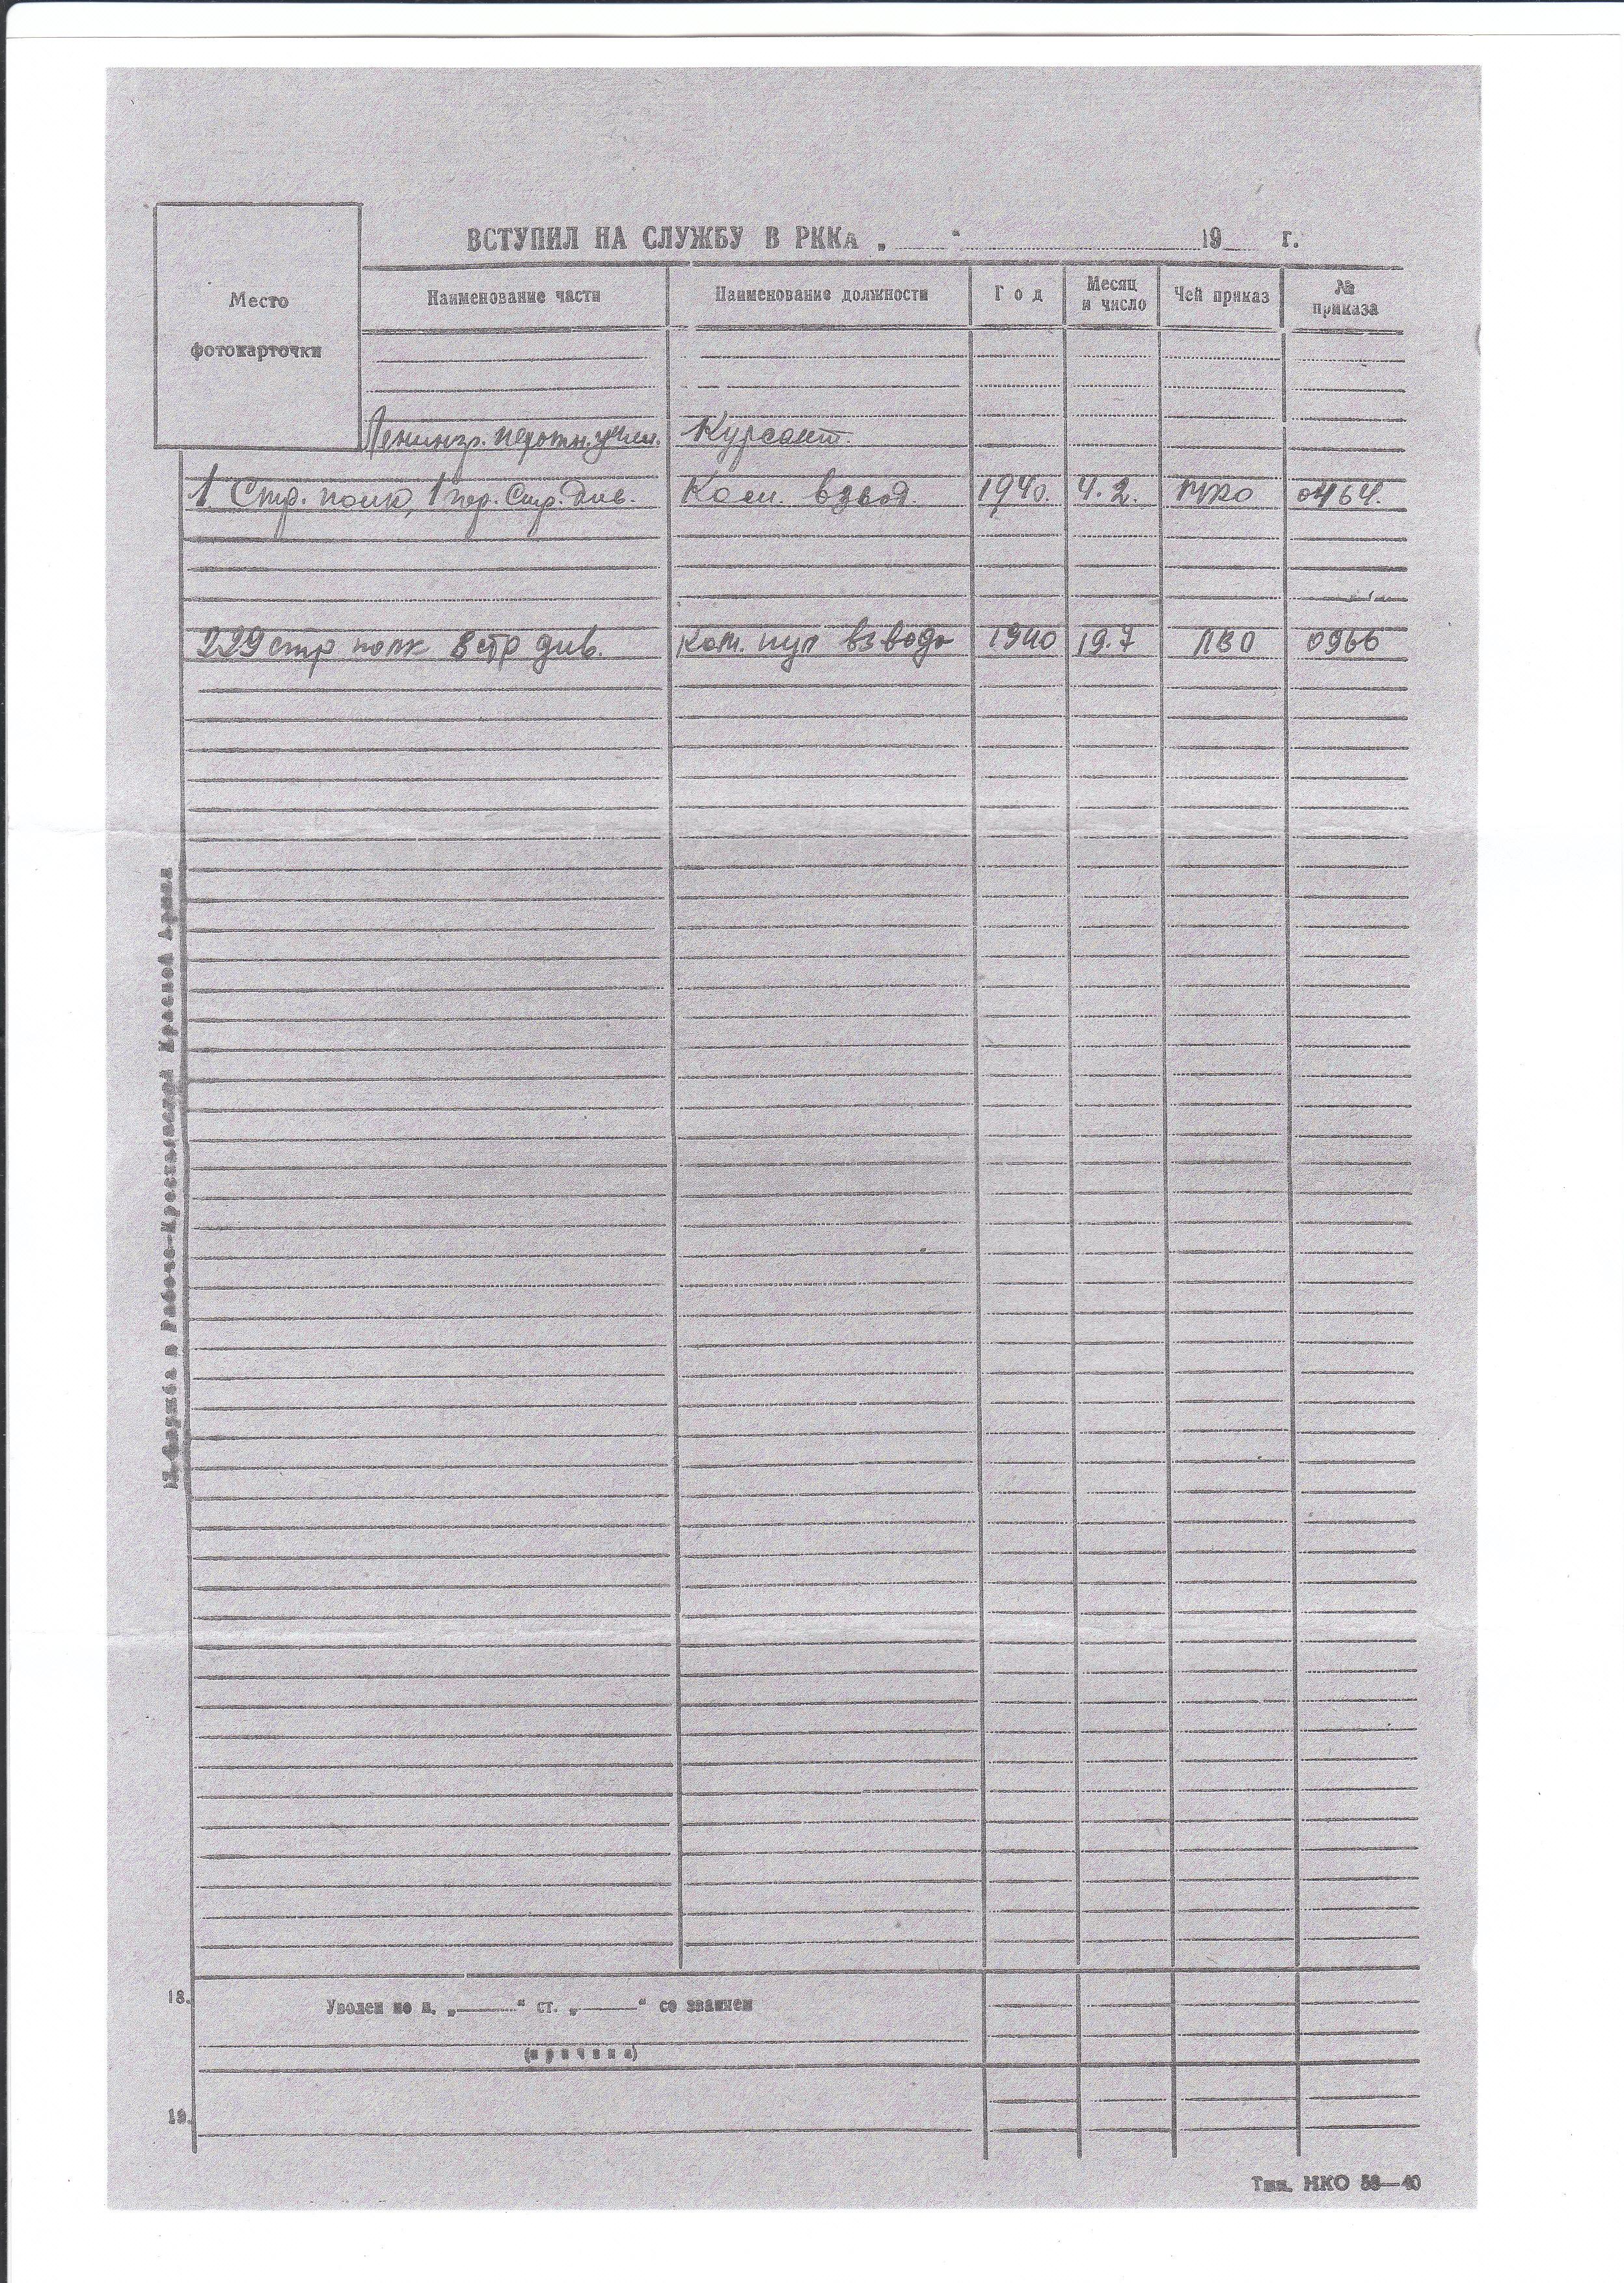 ВСТУПИЛ НА СЛУЖБУ В РККА „ “ 19 г.
Место
фотокарточки
Наименование части Наименование должности Год Месяц и число Чей приказ № приказа
Ленингр. пехотн. учил. Курсант.
1 Стр. полк, 1 Стр. див. Ком. взвод. 1940. 4. 2. НКО 0464.
229 стр полк 8 стр див. ком. пул взвода 1940 19.7 ЛВО 0966
17. Служба в Рабоче-Крестьянской Красной Армии
18. Уволен по п. „ “ ст. „ “ со званием
(причина)
19.
Тип. НКО 58—40